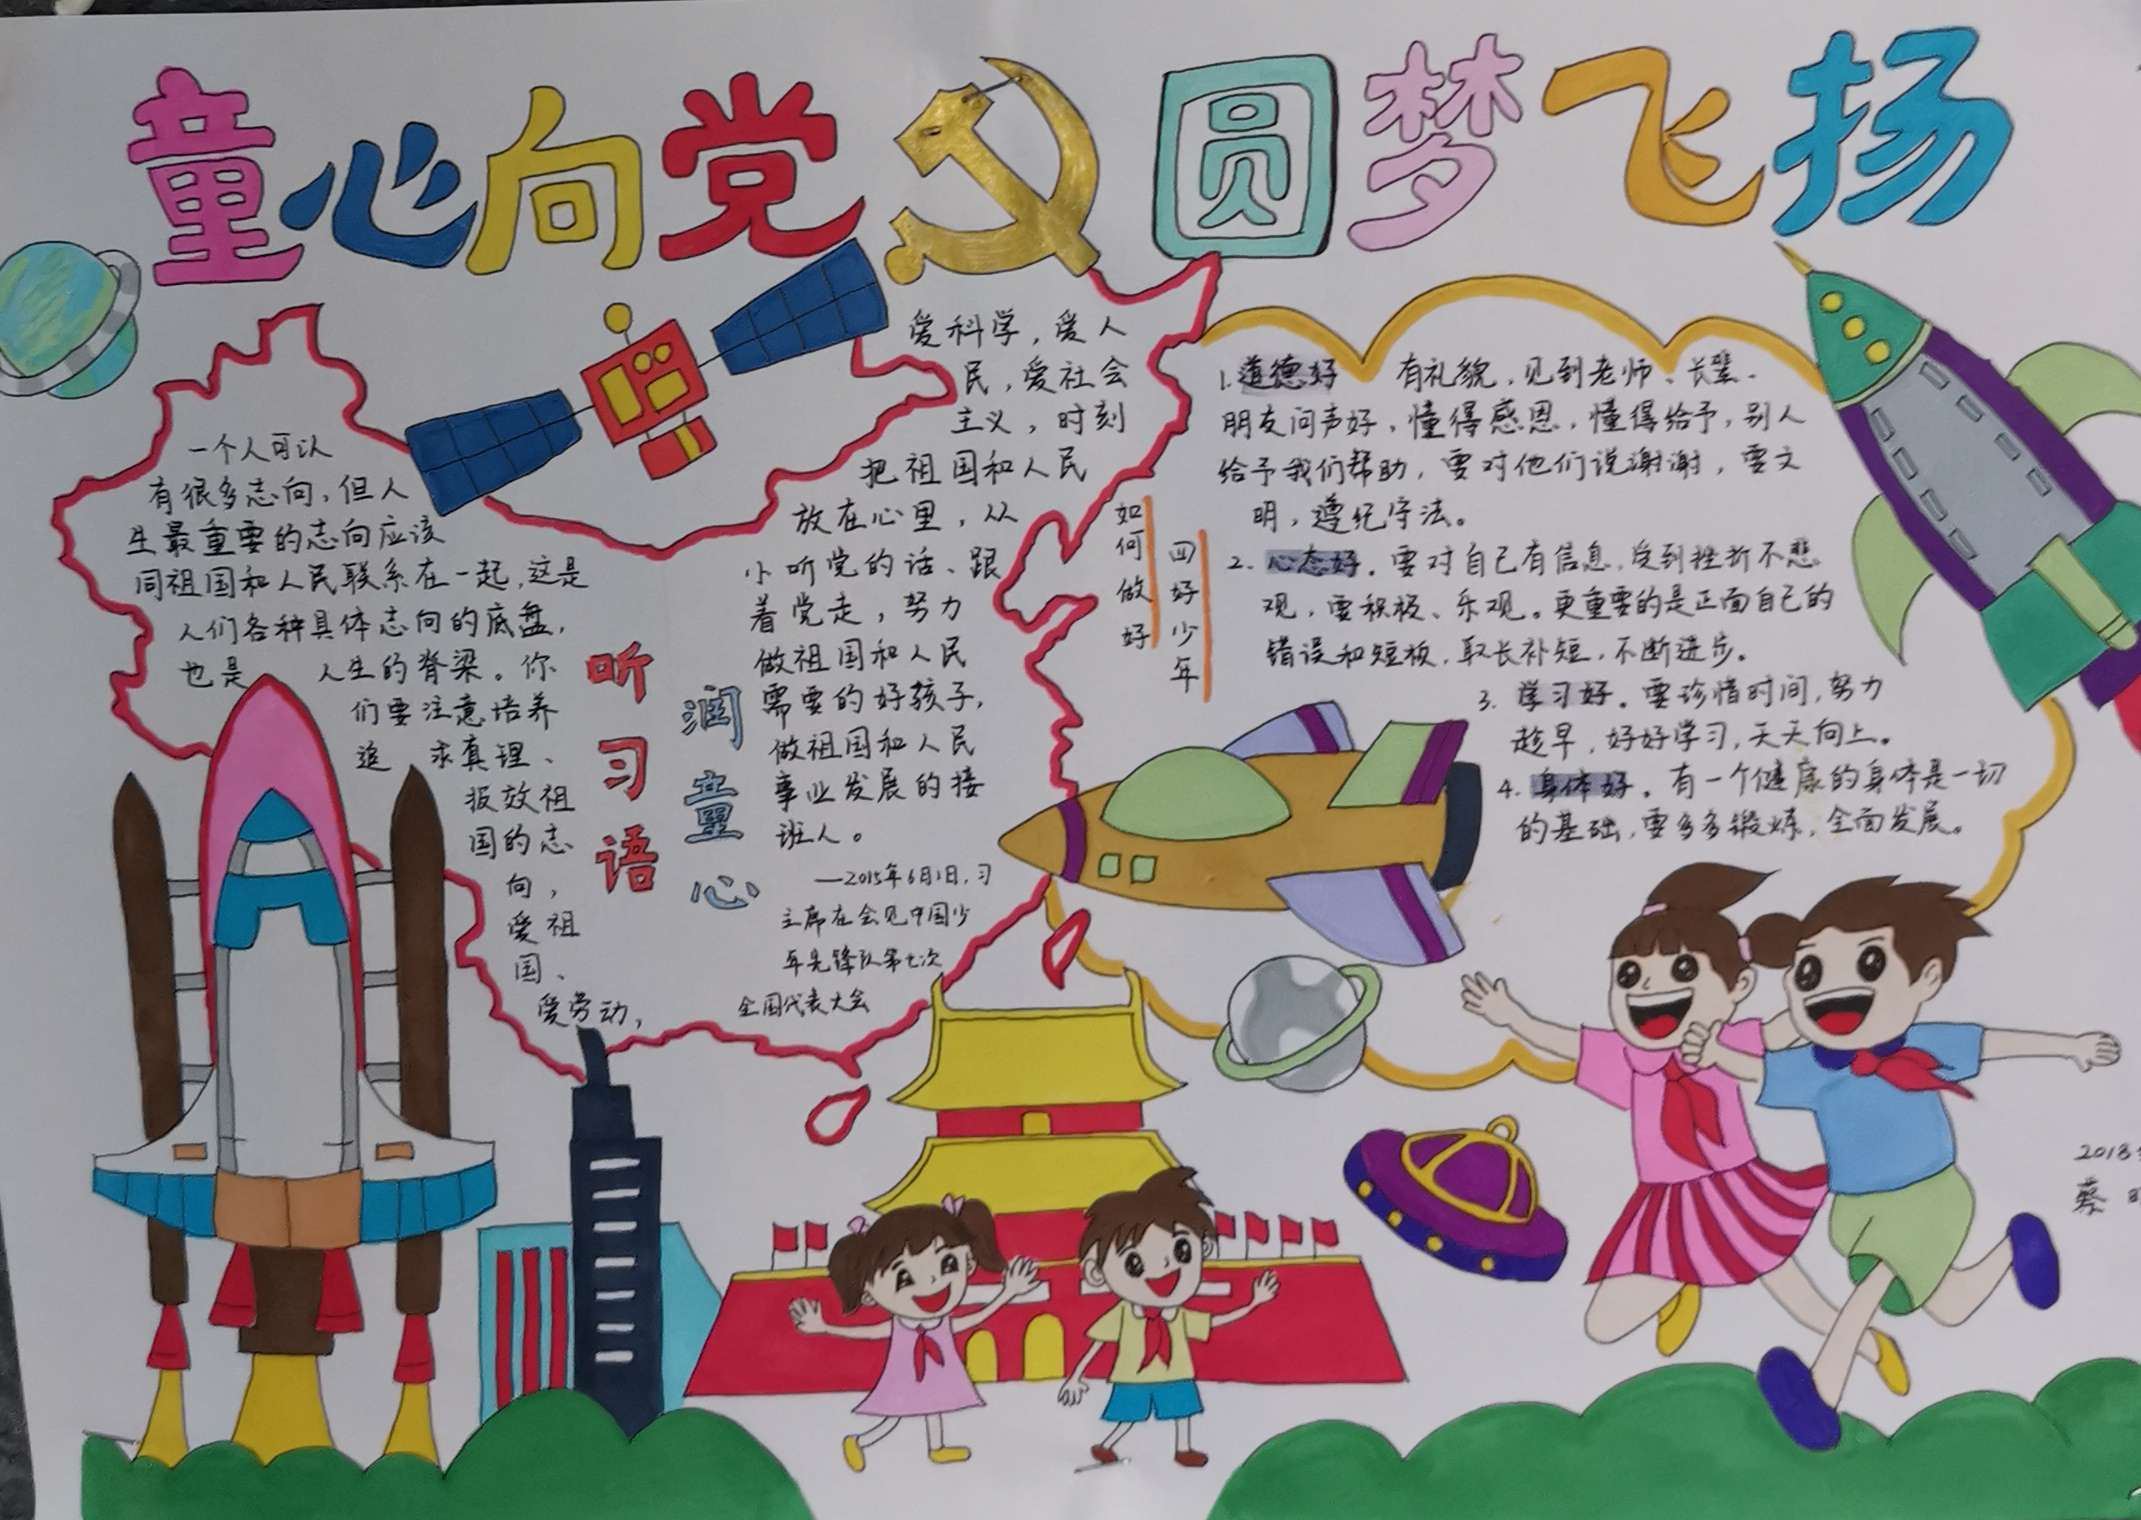 童心向党 圆梦飞扬
一个人可以
有很多志向，但人
生最重要的志向应该
同祖国和人民联系在一起，这是
人们各种具体志向的底盘，
也是 人生的脊梁。你
们要注意培养
追 求真理、
报效祖
国的志
向，
爱祖
国、
爱劳动，
爱科学，爱人
民，爱社会
主义，时刻
把祖国和人民
放在心里，从
小听党的话、跟
着党走，努力
做祖国和人民
需要的好孩子，
做祖国和人民
事业发展的接
班人。
—2015年6月1日，习
主席在会见中国少
年先锋队第七次
全国代表大会
听习语
润童心
如何做好
四好少年
1. 道德好 有礼貌，见到老师、长辈、
朋友问声好，懂得感恩，懂得给予，别人
给予我们帮助，要对他们说谢谢，要文
明，遵纪守法。
2. 心态好。要对自己有信息，受到挫折不悲
观，要积极、乐观。更重要的是正面自己的
错误和短板，取长补短，不断进步。
3. 学习好。要珍惜时间，努力
趁早，好好学习，天天向上。
4. 身体好。有一个健康的身体是一切
的基础，要多多锻炼，全面发展。
2018
蔡